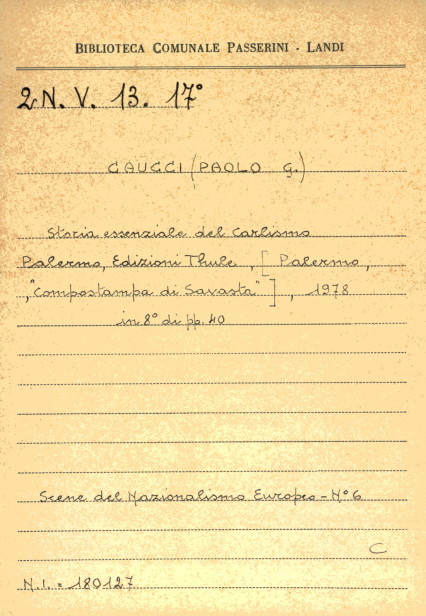 BIBLIOTECA COMUNALE PASSERINI - LANDI
2N. V. 13. 17°
CAUCCI (PAOLO G.)
Storia essenziale del Carlismo
Palermo, Edizioni Thule, [Palermo,
"Compostampa di Savasta"], 1978
in 8° di pp. 40
Scene del Nazionalismo Europeo - N° 6
C
N.I. = 180127